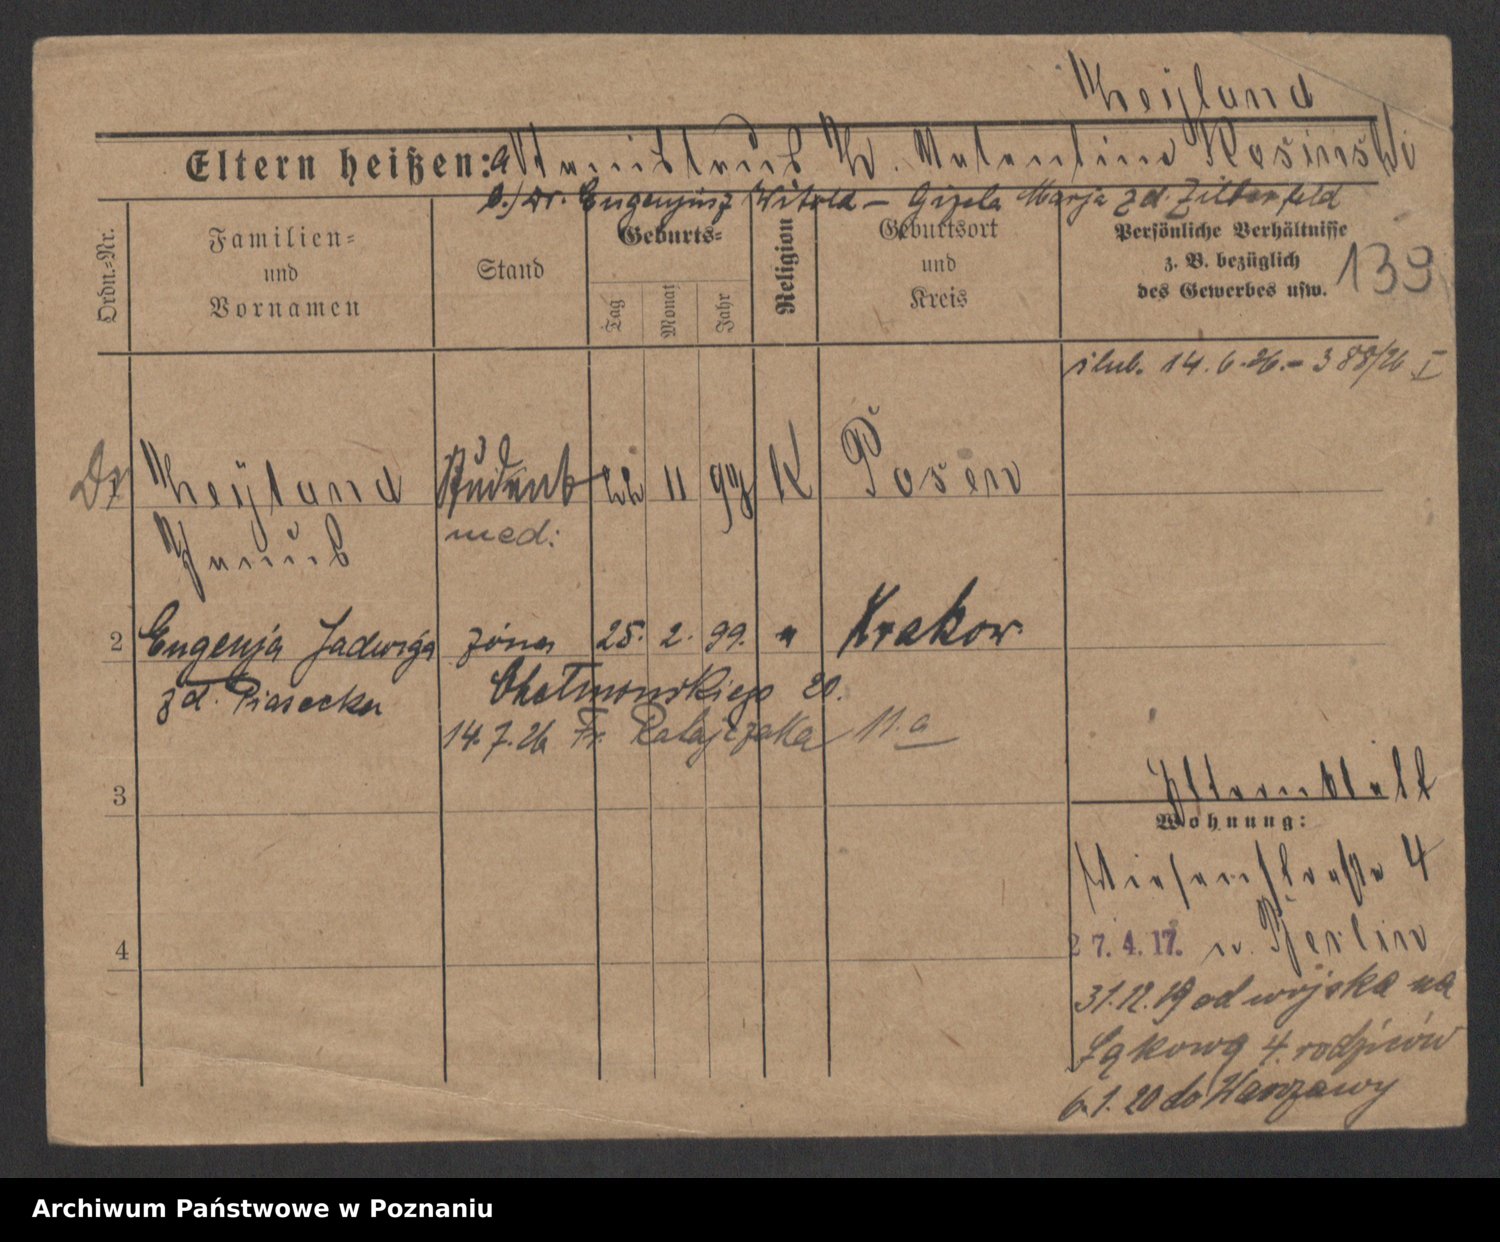 Zeyland
Eltern heißen: a Stanislaus Z. Valentine Kosinski
b.) Dr. Eugenjusz Witold – Gizela Marja zd. Zilberfeld
Ordn.-Nr.
Familien-
und
Vornamen
Stand
Geburts-
Tag
Monat
Jahr
Religion
Geburtsort
und
Kreis
Persönliche Verhältnisse
z. B. bezüglich
des Gewerbes usw.
139
ślub. 14.6.26. – 388/26 I
Dr Zeyland Student 22 11 97 K Posen
Janus med:
2 Eugenja Jadwiga żona 25. 2. 99. " Krakow
zd. Piasecka Chełmońskiego 20.
14.7.26 Fr. Ratajczaka 11.a
3
Elternblatt
Wohnung:
Wiesenstraße 4
4
27.4.17. n. Berlin
31.12.19 od wojska na
Łąkową 4. rodziców
6.1.20 do Warszawy
Archiwum Państwowe w Poznaniu